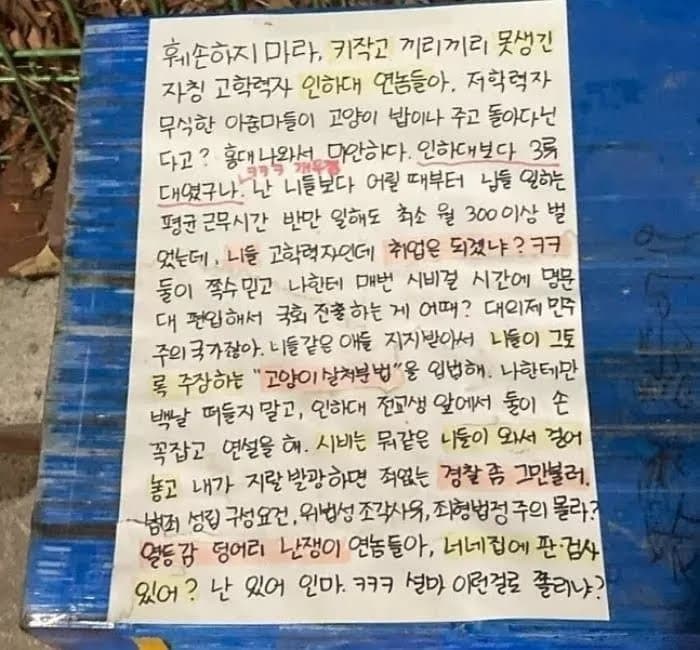 훼손하지 마라, 키작고 끼리끼리 못생긴
자칭 고학력자 인하대 연놈들아. 저학력자
무식한 아줌마들이 고양이 밥이나 주고 돌아다닌
다고? 홍대 나와서 미안하다. 인하대보다 3류
대였구나. 난 니들보다 어릴 때부터 님들 일하는
평균 근무시간 반만 일해도 최소 월 300이상 벌
었는데, 니들 고학력자인데 취업은 되겠냐? ㅋㅋ
둘이 쪽수 믿고 나한테 매번 시비걸 시간에 명문
대 편입해서 국회 진출하는 게 어때? 대의제 민주
주의 국가잖아. 니들같은 애들 지지받아서 니들이 그토
록 주장하는 "고양이 살처분법"을 입법해. 나한테만
백날 떠들지 말고, 인하대 전교생 앞에서 둘이 손
꼭잡고 연설을 해. 시비는 뭐같은 니들이 와서 걸어
놓고 내가 지랄발광하면 죄없는 경찰 좀 그만불러.
범죄 성립 구성요건, 위법성 조각사유, 죄형법정주의 몰라?
열등감 덩어리 난쟁이 연놈들아, 너네집에 판·검사
있어? 난 있어 인마. ㅋㅋㅋ 설마 이런걸로 쫄리냐?